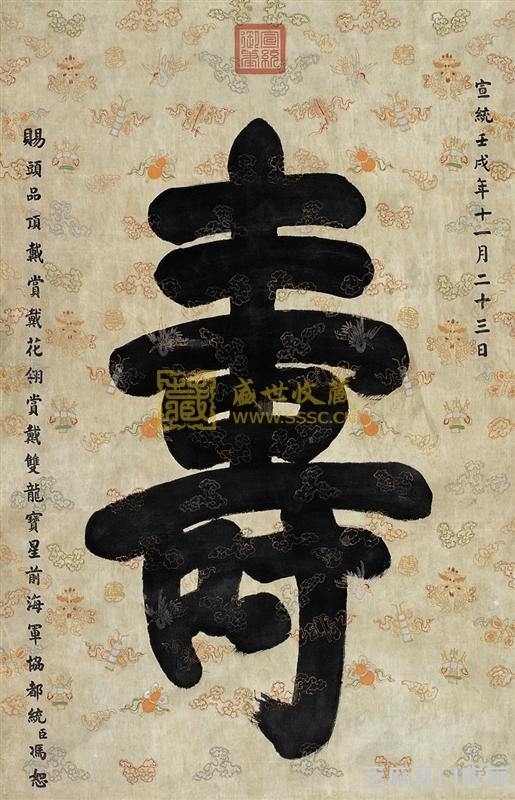 宣統御筆
宣統壬戌年十一月二十三日
壽
賜頭品頂戴賞戴花翎賞戴雙龍寶星前海軍協都統臣馮恕
盛世收藏
www.sssc.cn